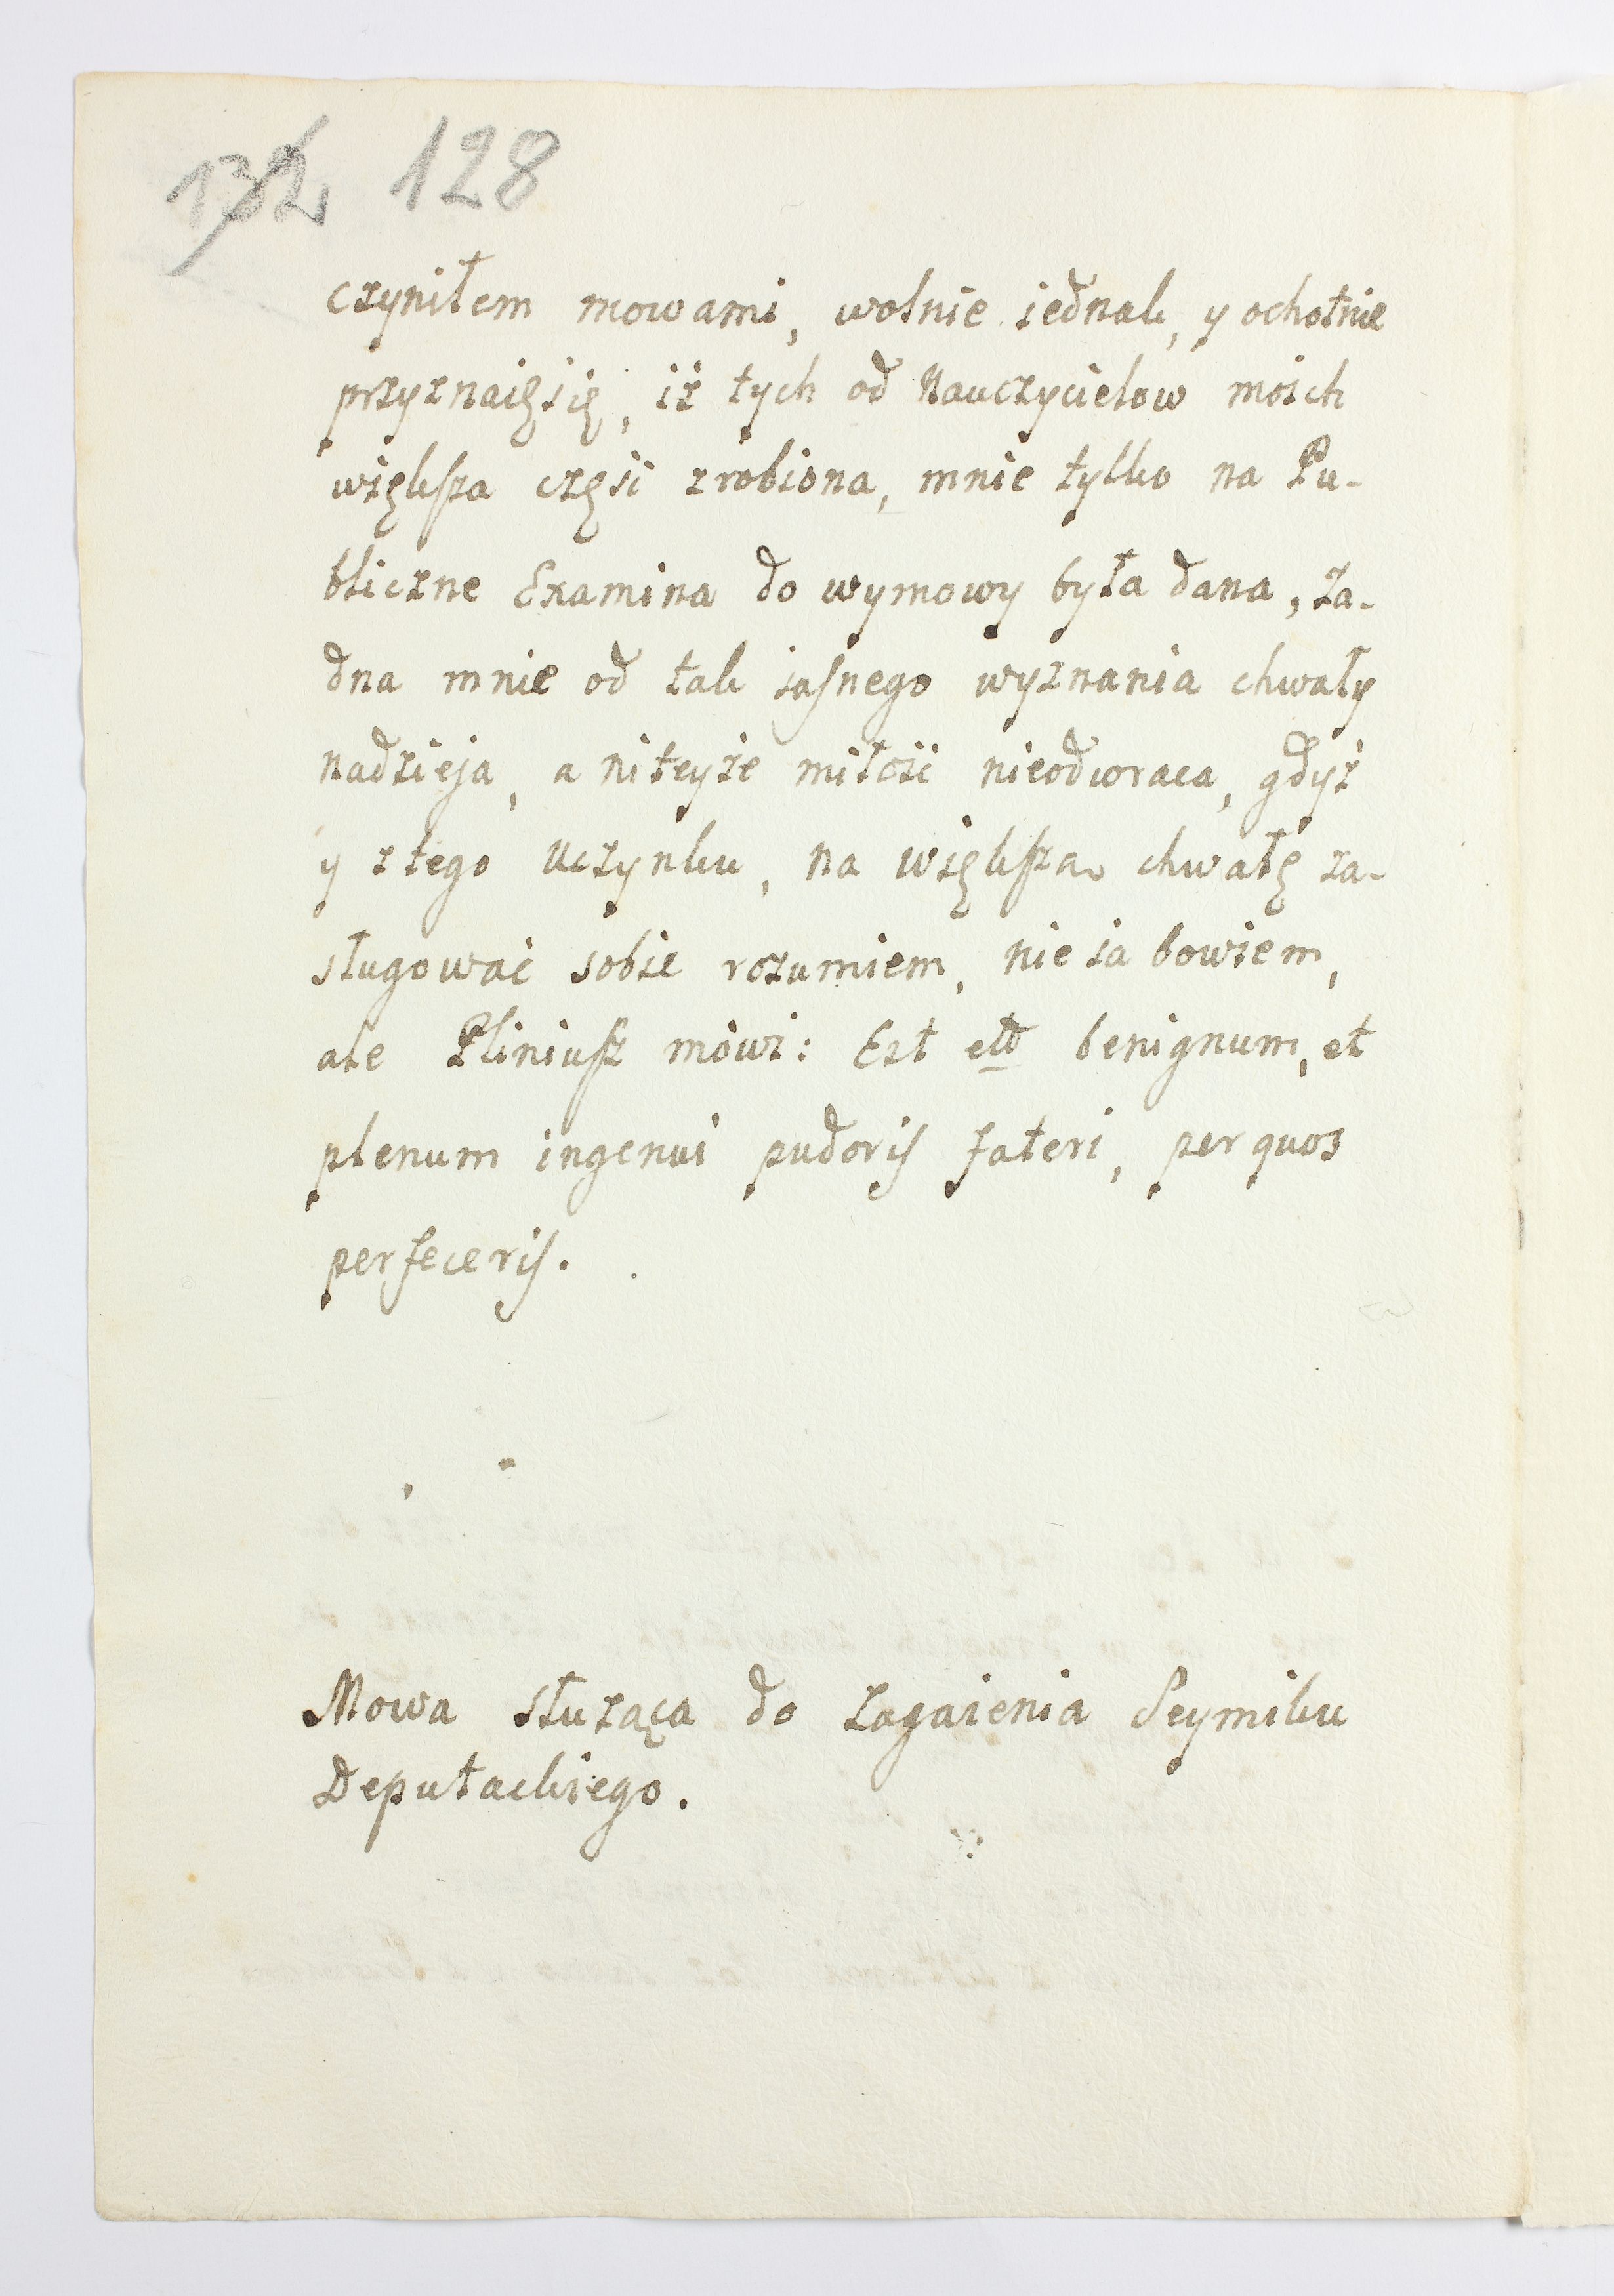 132 128
czyniłem mowami, wolnie iednak, y ochotnie
przyznaięsię, iż tych od Nauczycielow moich
więkſza częsć zrobiona, mnie tylko na Pu-
bliczne Examina do wymowy była dana, ża-
dna mnie od tak iaſnego wyznania chwały
nadzieja, a niteyże miłość nieodwraca, gdyż
y ztego Uczynku, na więkſzą chwałę za-
sługować sobie rozumiem, nie ia bowiem,
ale Pliniuſz mówi: Est benignum, et
plenum ingenui pudoris fateri, per quos
perfeceris.
Mowa służąca do zagaienia Seymiku
Deputackiego.